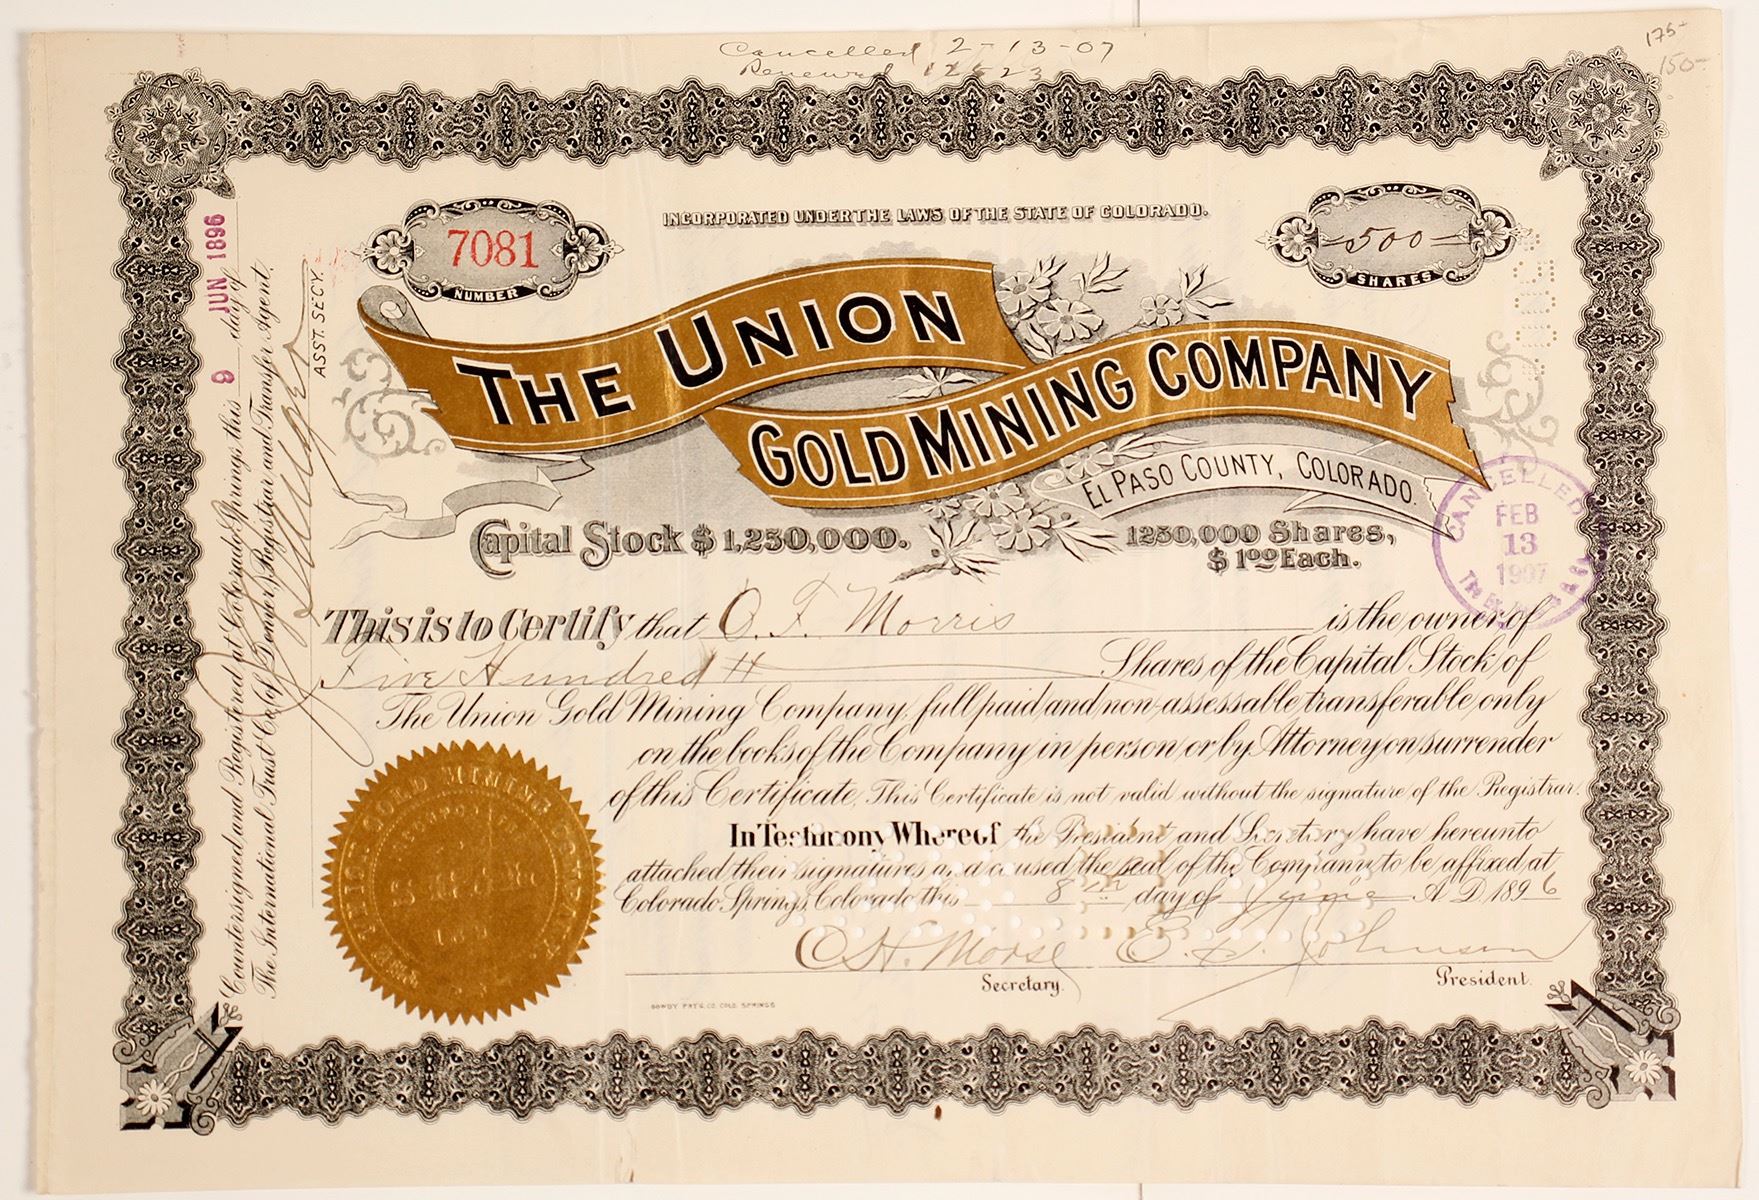 Cancelled 2-13-07
Renewed 12523
175-
150-
INCORPORATED UNDER THE LAWS OF THE STATE OF COLORADO.
7081
NUMBER
500
SHARES
THE UNION
GOLD MINING COMPANY
EL PASO COUNTY, COLORADO.
Capital Stock $1,250,000.
1250,000 Shares,
$1.00 Each.
CANCELLED
FEB
13
1907
This is to Certify that O. F. Morris is the owner of
Five Hundred Shares of the Capital Stock of
The Union Gold Mining Company, full paid and non-assessable transferable only
on the books of the Company in person or by Attorney on surrender
of this Certificate. This Certificate is not valid without the signature of the Registrar.
In Testimony Whereof the President and Secretary have hereunto
attached their signatures and caused the seal of the Company to be affixed at
Colorado Springs, Colorado this 8th day of June A.D. 1896
C H. Morse
Secretary.
E. S. Johnson
President.
GOWDY PRT'G. CO. COLO. SPRINGS
Countersigned and Registered at Colorado Springs this 9 day of JUN 1896
The International Trust Co. (of Denver) Registrar and Transfer Agent.
ASST. SECY.
GOLD MINING COMPANY